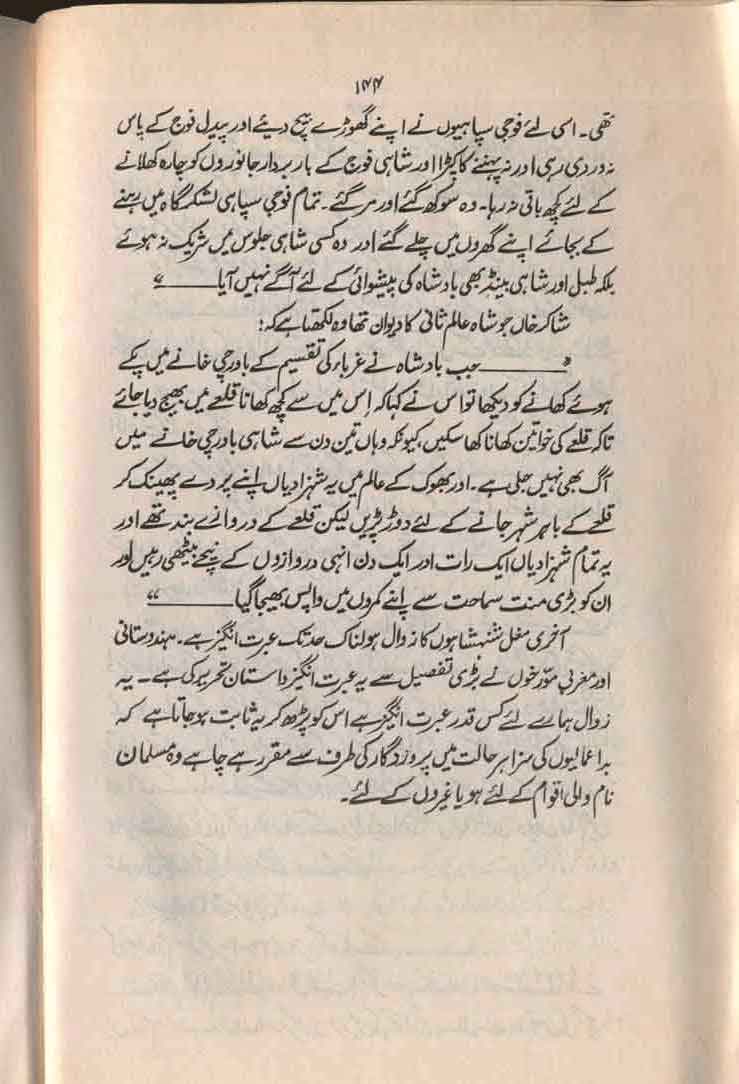 ۱۴۴
تھی۔ اسی لئے فوجی سپاہیوں نے اپنے گھوڑے بیچ دیئے اور پیدل فوج کے پاس
نہ وردی رہی اور نہ پہننے کا کپڑا اور شاہی فوج کے بار بردار جانوروں کو چارہ کھلانے
کے لئے کچھ باقی نہ رہا۔ وہ سوکھ گئے اور مر گئے۔ تمام فوجی سپاہی لشکر گاہ میں رہنے
کے بجائے اپنے گھروں میں چلے گئے اور وہ کسی شاہی جلوس میں شریک نہ ہوئے
بلکہ طبل اور شاہی بینڈ بھی بادشاہ کی پیشوائی کے لئے آگے نہیں آیا ــــــــ “
شاکر خاں جو شاہ عالم ثانی کا دیوان تھا وہ لکھتا ہے کہ:
” ــــــــ جب بادشاہ نے غرباء کی تقسیم کے باورچی خانے میں پکے
ہوئے کھانے کو دیکھا تو اس نے کہا کہ اِس میں سے کچھ کھانا قلعے میں بھیج دیا جائے
تاکہ قلعے کی خواتین کھانا کھا سکیں، کیونکہ وہاں تین دن سے شاہی باورچی خانے میں
آگ بھی نہیں جلی ہے۔ اور بھوک کے عالم میں یہ شہزادیاں اپنے پردے پھینک کر
قلعے کے باہر شہر جانے کے لئے دوڑ پڑیں لیکن قلعے کے دروازے بند تھے اور
یہ تمام شہزادیاں ایک رات اور ایک دن انہی دروازوں کے نیچے بیٹھی رہیں اور
ان کو بڑی منت سماحت سے اپنے کمروں میں واپس بھیجا گیا ــــــــ “
آخری مغل شنہشاہوں کا زوال ہولناک حد تک عبرت انگیز ہے۔ ہندوستانی
اور مغربی مورّخوں نے بڑی تفصیل سے یہ عبرت انگیز داستان تحریر کی ہے۔ یہ
زوال ہمارے لئے کس قدر عبرت انگیز ہے اس کو پڑھ کر یہ ثابت ہو جاتا ہے کہ
بداعمالیوں کی سزا ہر حالت میں پروردگار کی طرف سے مقرر ہے چاہے وہ مسلمان
نام والی اقوام کے لئے ہو یا غیروں کے لئے۔